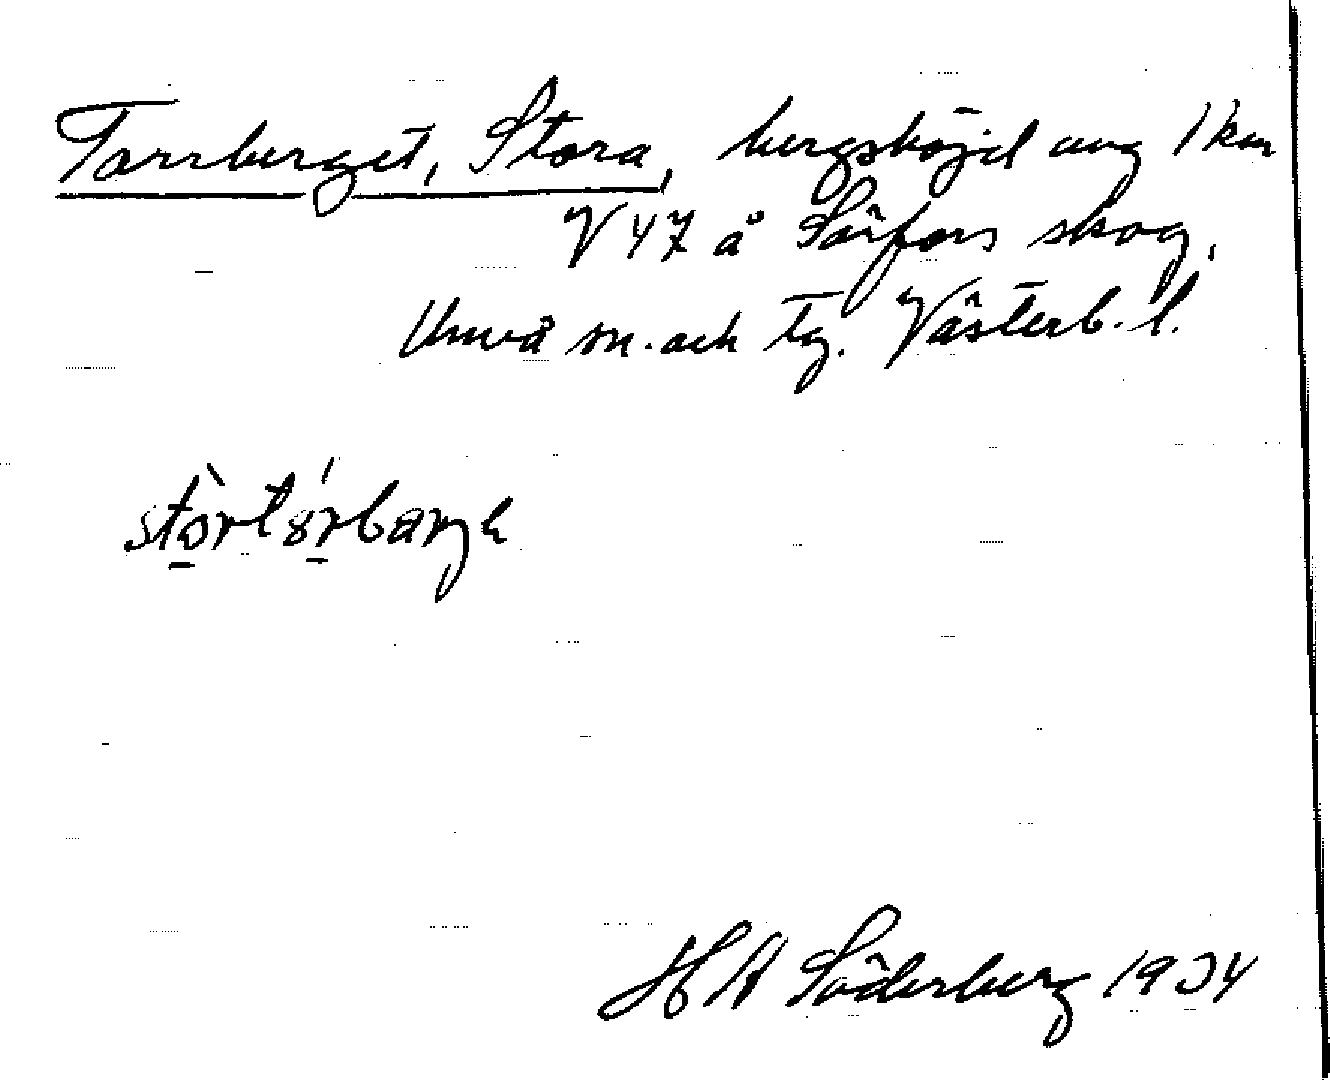 Torrberget, Stora, bergshöjd ung 1 km
V 47 å Sörfors skog,
Umeå sn. och tg. Västerb. l.
stòrtórbærjə
H A Söderberg 1934